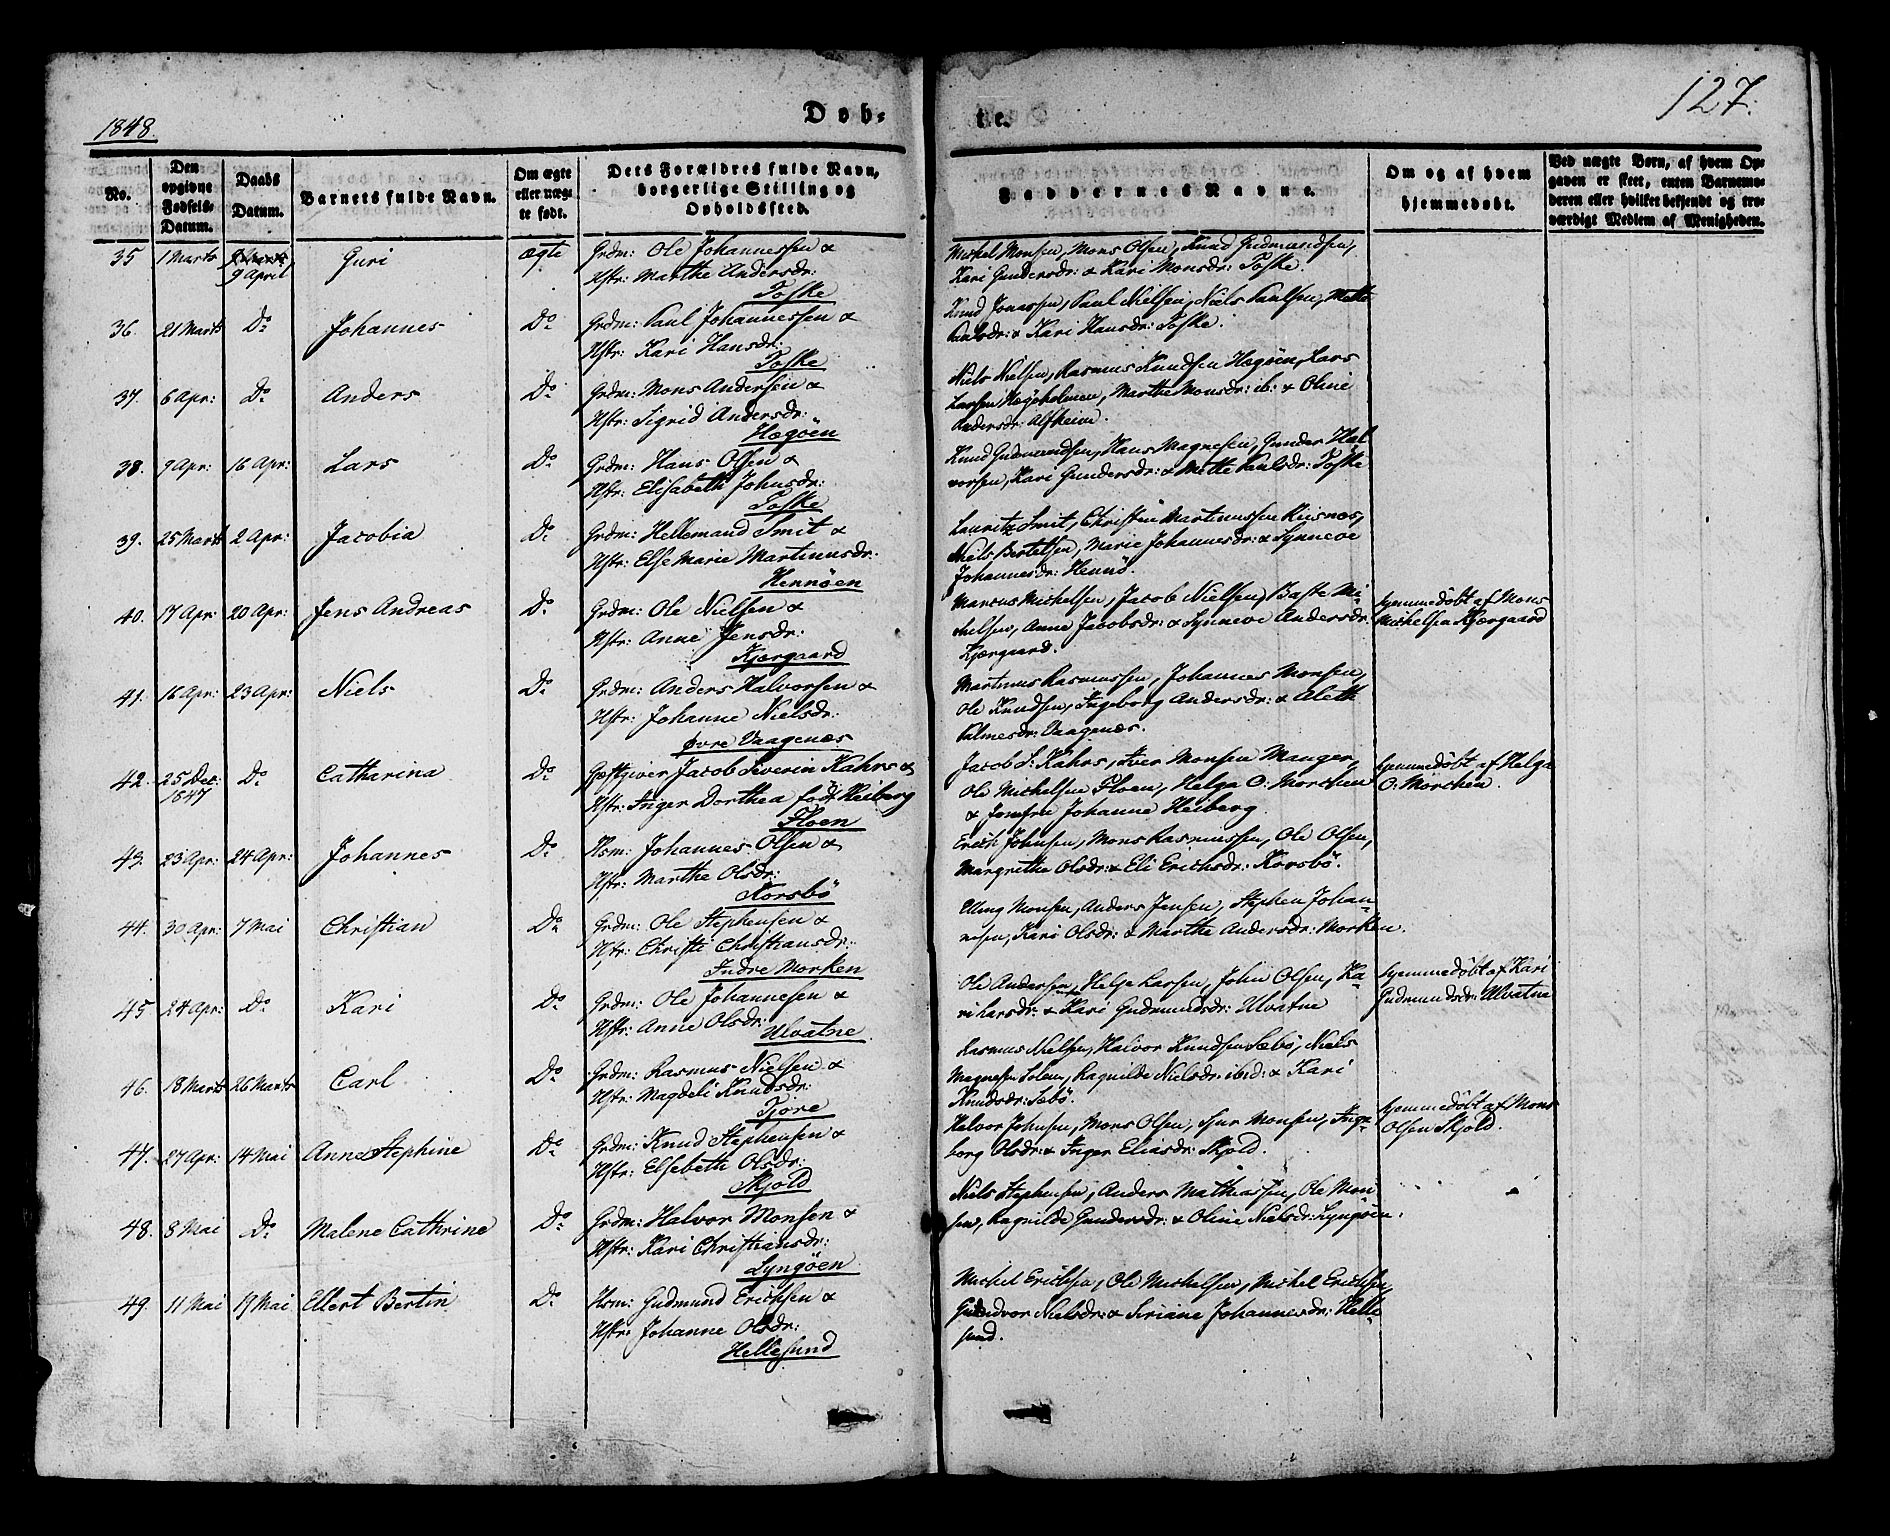 1848.
Døb-
te.
127.
No.
Den opgivne Fødsels-Datum.
Daabs Datum.
Barnets fulde Navn.
Om ægte eller uægte født.
Dets Forældres fulde Navn, borgerlige Stilling og Opholdssted.
Faddernes Navne.
Om og af hvem hjemmedøbt.
Ved uægte Børn, af hvem Opgaven er skeet, enten Barnemoderen eller hvilket bekjendt og troværdigt Medlem af Menigheden.
35 1 Marts 9 April Guri ægte Grdm: Ole Johannessen &
Hstr: Marthe Andersdr:
Toske
Michel Monsen, Mons Olsen, Knud Gudmundsen,
Kari Gundersdr: & Kari Monsdr: Toske.
36. 21 Marts Do Johannes Do Grdm: Paul Johannessen &
Hstr: Kari Hansdr:
Toske
Knud Jonassen, Paul Nielsen, Niels Paulsen, Mette
Paulsdr: & Kari Hansdr: Toske.
37. 6 Apr: Do Anders Do Grdm: Mons Andersen &
Hstr: Sigrid Andersdr:
Hægøen
Niels Nielsen, Rasmus Knudsen Hægøen, Lars
Larsen Hægeholmen, Marthe Monsdr: ib: & Oline
Andersdr: Alfheim.
38. 9 Apr: 16 Apr: Lars Do Grdm: Hans Olsen &
Hstr: Elisabeth Johnsdr:
Toske
Knud Gudmundsen, Hans Magnesen, Gunder Hal
vorsen, Kari Gundersdr: & Mette Paulsdr: Toske
39. 25 Marts 2 Apr: Jacobia Do Grdm: Hellemand Smit &
Hstr: Else Marie Martinusdr:
Hennøen
Lauritz Smit, Christen Martinussen Risnæs,
Niels Bertelsen, Marie Johannesdr: & Synneve
Johannesdr: Hennø.
40. 17 Apr 20 Apr: Jens Andreas Do Grdm: Ole Nielsen &
Hstr: Anne Jensdr:
Kjærgaard
Marcus Michelsen, Jacob Nielsen, Baste Mi-
chelsen, Anne Jacobsdr: & Synneve Andersdr:
Kjærgaard.
hjemmedøbt af Mons
Michelsen Kjærgaard
41. 16 Apr: 23 Apr: Niels Do Grdm: Anders Halvorsen &
Hstr: Johanne Nielsdr:
Øvre Vaagenæs
Martinus Rasmussen, Johannes Monsen,
Ole Knudsen, Ingeborg Andersdr: & Aleth
Palmesdr: Vaagenæs.
42. 25 Dec: 1847 Do Catharina Do Gjæstgiver Jacob Severin Kahrs &
Hstr: Inger Dorthea født Heiberg
Floen
Jacob S. Kahrs, Iver Monsen Manger,
Ole Michelsen Floen, Helga O. Morchen
& Jomfru Johanne Heiberg
hjemmedøbt af Helga
O: Mörchen.
43. 23 Apr: 24 Apr: Johannes Do Hsm: Johannes Olsen &
Hstr: Marthe Olsdr:
Korsbö
Erich Johnsen, Mons Rasmussen, Ole Olsen,
Margrethe Olsdr: & Eli Erichsdr: Korsbö.
44. 30 Apr: 7 Mai Christian Do Grdm: Ole Stephensen &
Hstr: Christi Christiansdr:
Indre Morken
Elling Monsen, Anders Jensen, Stephen Johan-
nesen, Kari Olsdr: & Marthe Andersdr: Morken.
45 24 Apr: Do Kari Do Grdm: Ole Johannesen &
Hstr: Anne Olsdr:
Ulvatne
Ole Andersen, Helge Larsen, John Olsen, Ka-
ri Larsdr: & Kari Gudmundsdr: Ulvatne
hjemmedøbt af Kari
Gudmundsdr: Ulvatne
46. 18 Marts 26 Marts Carl Do Grdm: Rasmus Nielsen &
Hstr: Magdeli Knudsdr:
Tjore
Rasmus Nielsen, Halvor Knudsen Sæbö, Niels
Magnesen Solem, Ragnilde Nielsdr: ibid: & Kari
Knudsdr: Sæbö.
47. 27 Apr: 14 Mai Anne Stephine Do Grdm: Knud Stephensen &
Hstr: Elsebeth Olsdr:
Skjold
Halvor Johnsen, Mons Olsen, Sjur Monsen, Inge-
borg Olsdr: & Inger Eliasdr: Skjold.
hjemmedøbt af Mons
Olsen Skjold.
48. 8 Mai Do Malene Cathrine Do Grdm: Halvor Monsen &
Hstr: Kari Christiansdr:
Lyngøen
Niels Stephensen, Anders Mathiassen, Ole Mon
sen, Ragnilde Gundersdr: & Oline Nielsdr: Lyngøen.
49. 11 Mai 19 Mai Ellert Bertin Do Hsm: Gudmund Erichsen &
Hstr: Johanne Olsdr:
Hellesund
Michel Erichsen, Ole Michelsen, Michel Erichsen,
Gundvor Nielsdr: & Siriane Johannesdr: Helle-
sund.